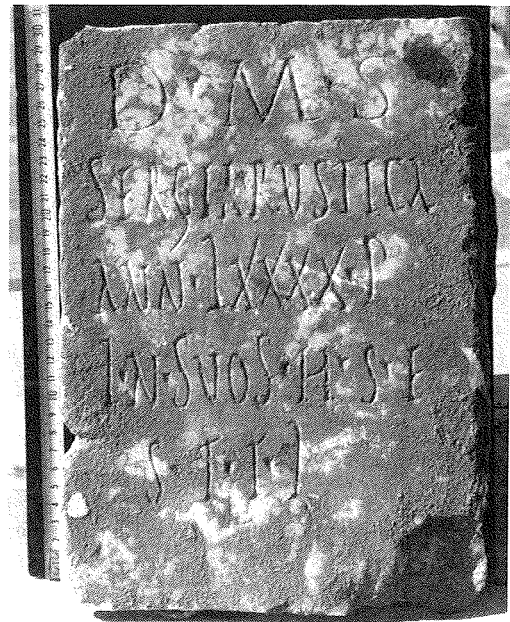 D M S
SERGIA RUSTICA
ANN · LXXXX · P
IN · SUOS · H · S · E
S · T · T · L